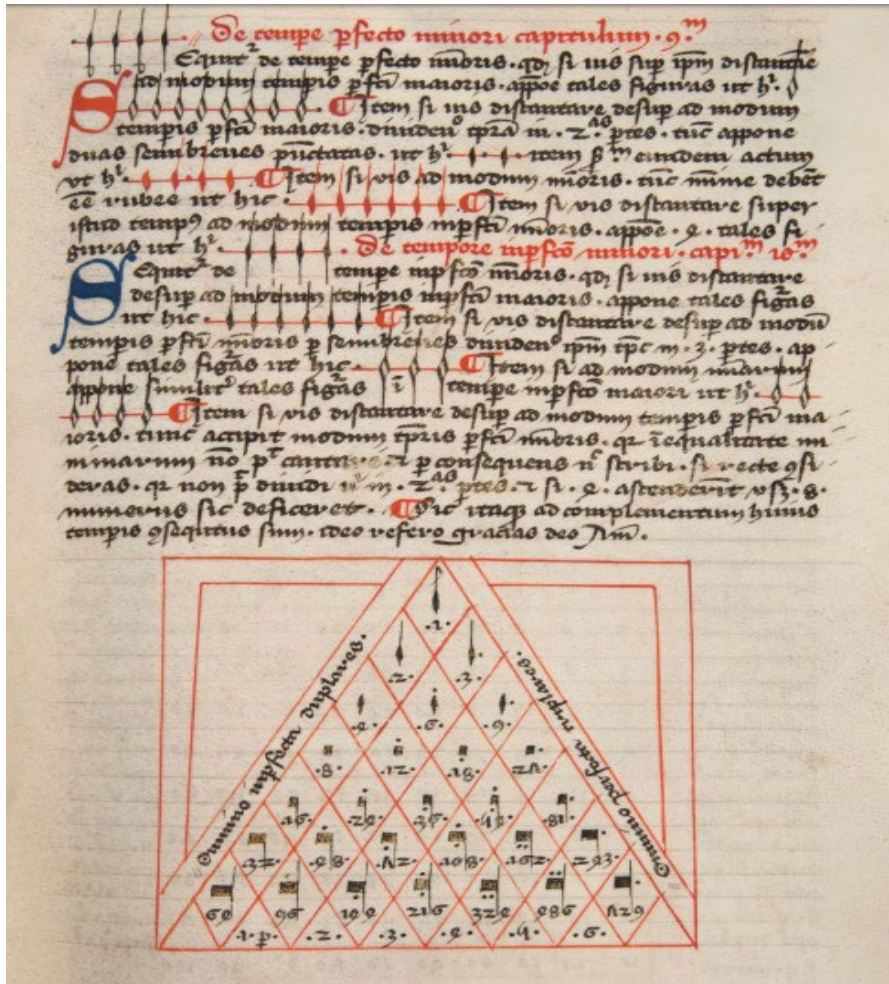 De tempe pfecto minori capitulum · 9m
Sequitr de tempe pfecto mioris · qđ si uis sup ipm distantare
ad modum tempis pfcti maioris · appōe tales figuras ut hr ·
Item si uis distantare desup ad modum
temperis pfcti maioris · in · 2as ptes · tūc appone
duas semibreues pūctatas · ut hr · item eundem actum
ut hr · Item si vis ad modum mīoris · tunc mīme debēt
eē rubee ut hic · Item si vis distantare super
istud tempus ad modum tempis inpfcti mīoris · appōe · 4 · tales fi
guras ut hr · De tempore inpfcō minori · capim 10m
Sequitr de tempe inpfcō mīoris · qđ si uis distantare
desup ad modum tempis inpfcti maioris · appone tales figās
ut hic · Item si vis distantare desup ad modū
tempis pfcti mīoris p semibreues ipm tpc in · 3 · ptes · ap
pone tales figās ut hic · Item si ad modum
appone similitr tales figās ī tempe inpfcō maiori ut hr ·
Item si vis distantare desup ad modum tempis pfcti ma
ioris · tunc accipit modum tpris pfcti mīoris · qr īequalitate mi
nimarum nō pt cantari · 7 p consequens nō scribi · si recte 9si
deras · qr non pt diuidi in · 2as ptes · 7 si · 4 · ascenderīt usq3 · 8 ·
numerus sic deficeret · Sic itaqz ad complementum huius
tempis 9sequtus sum · ideo refero gracias deo Am̄ ·
Omnino inpfecta duplares ·
Omnino perfecta triplares ·
· 1 ·
· 2 · · 3 ·
· 4 · · 6 · · 9 ·
· 8 · · 12 · · 18 · · 27 ·
· 16 · · 24 · · 36 · · 54 · · 81 ·
· 32 · · 48 · · 72 · · 108 · · 162 · · 243 ·
64 96 144 216 324 486 729
· 1 · p · · 2 · · 3 · · 4 · · 5 · · 6 ·